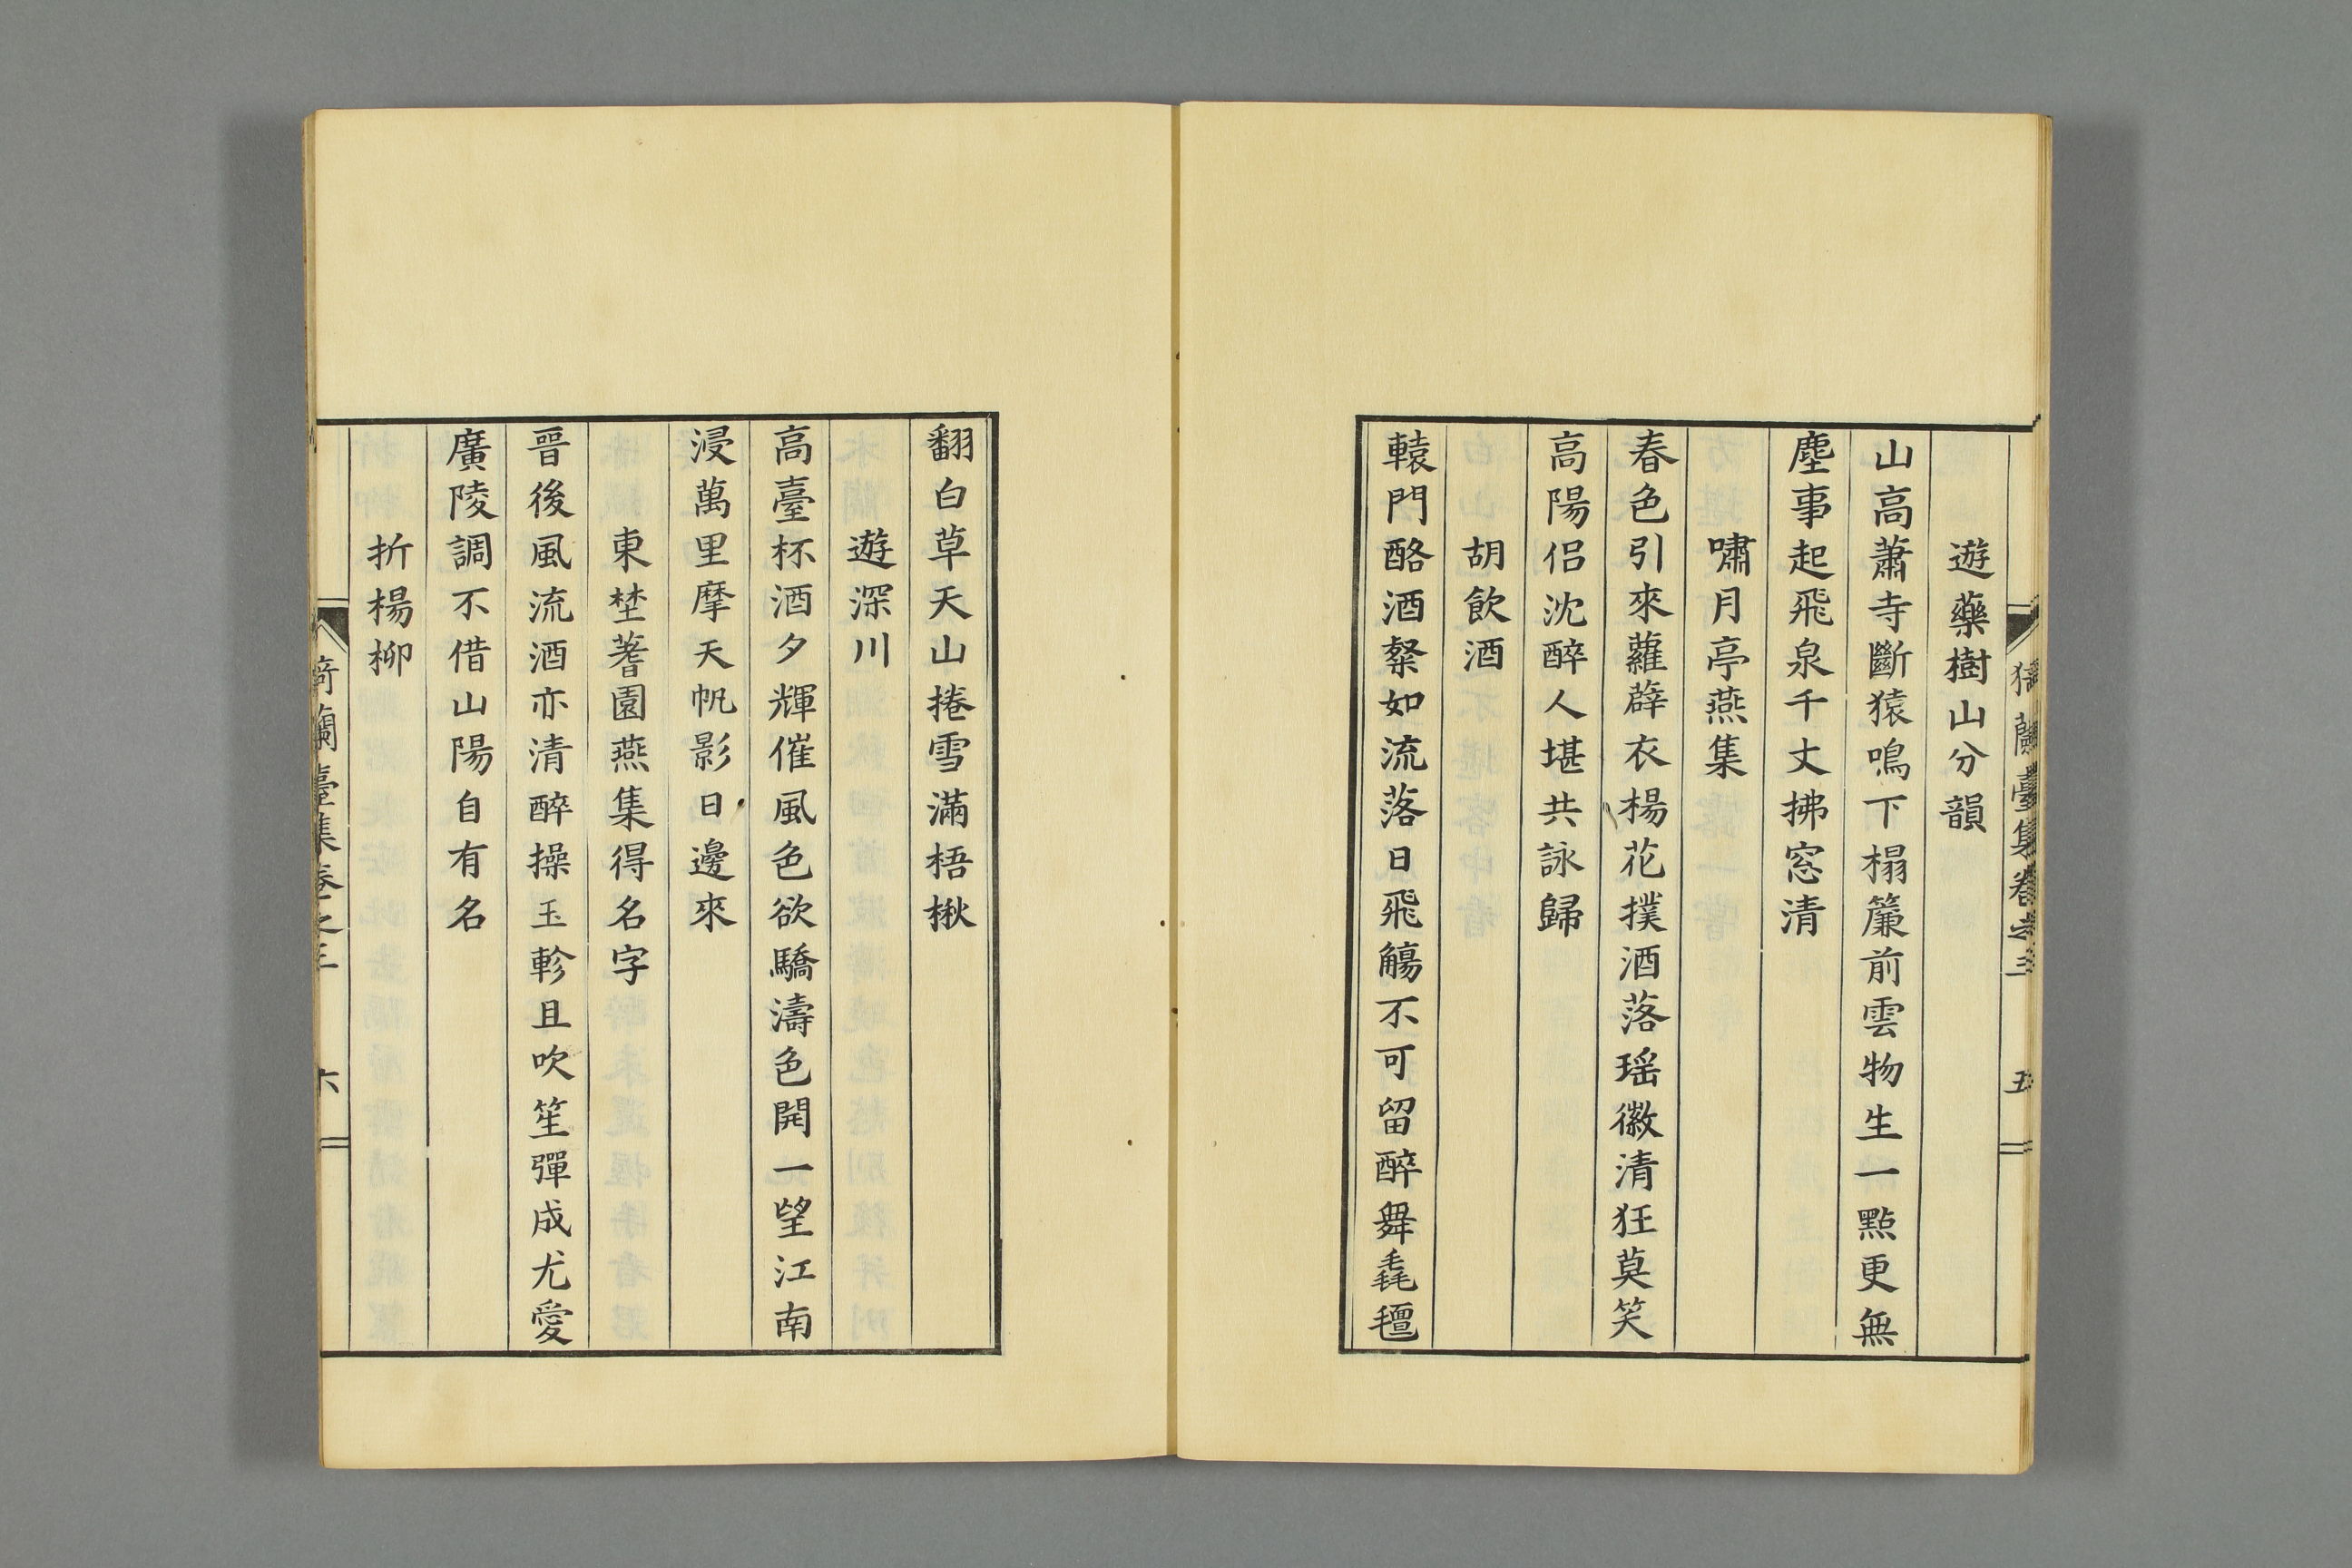 遊藥樹山分韻
山高蕭寺斷猿鳴下榻簾前雲物生一點更無
塵事起飛泉千丈拂窓清
嘯月亭燕集
春色引來蘿薜衣楊花撲酒落瑶徽清狂莫笑
高陽侶沈醉人堪共詠歸
胡飲酒
轅門酪酒粲如流落日飛觴不可留醉舞毳氊
翻白草天山捲雪滿梧楸
遊深川
高臺杯酒夕輝催風色欲驕濤色開一望江南
浸萬里摩天帆影日邊來
東埜蓍園燕集得名字
晉後風流酒亦清醉操玉軫且吹笙彈成尤愛
廣陵調不借山陽自有名
折楊柳
蘭臺集卷之三
五
六